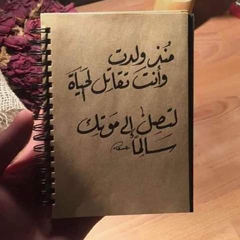 منذ ولدت
وأنت تقاتل لحياة
لتصل إلى موتك
سالمًا